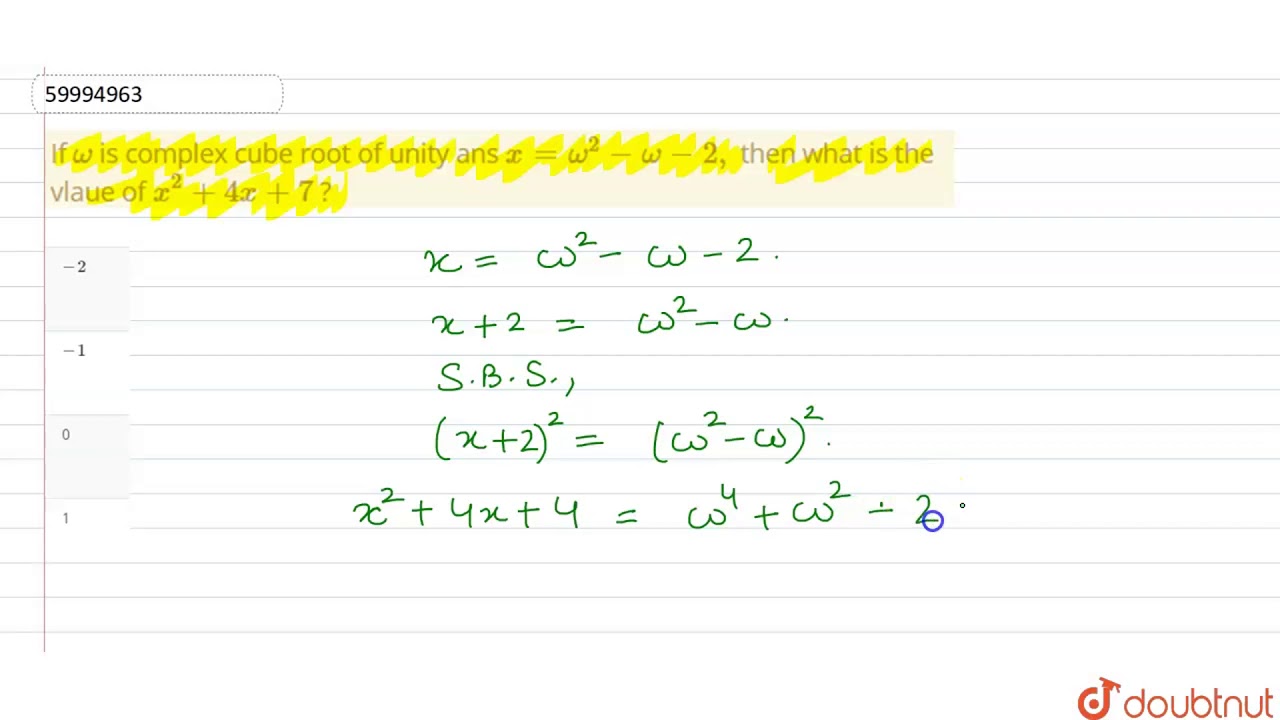 59994963
If ω is complex cube root of unity ans x = ω² − ω − 2, then what is the
vlaue of x² + 4x + 7 ?
x = ω² − ω − 2 .
−2
x + 2 = ω² − ω .
−1
S.B.S.,
(x+2)² = (ω² − ω)² .
0
x² + 4x + 4 = ω⁴ + ω² − 2
1
doubtnut